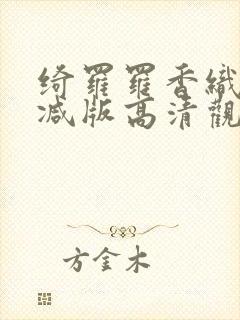 绮羅羅香織
減版高清觀
方金木